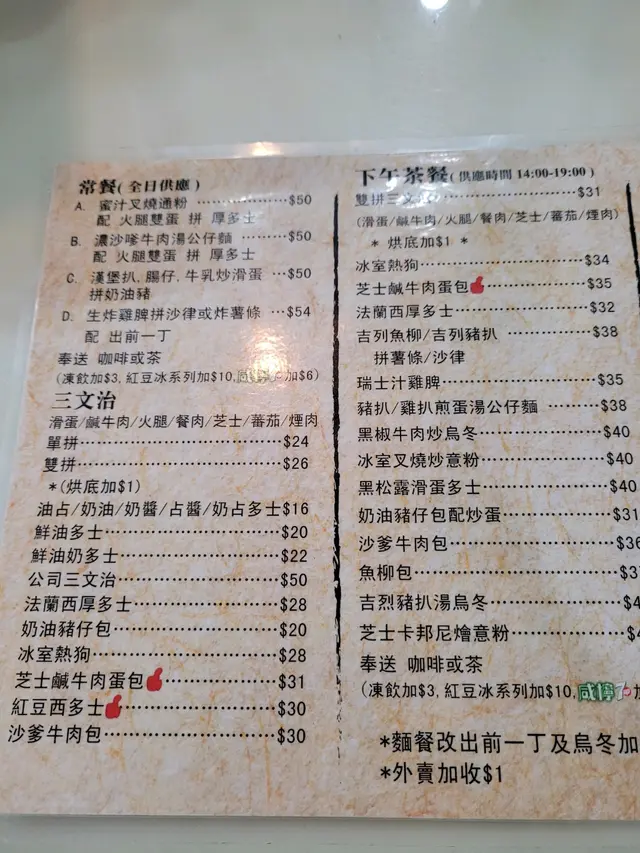 常餐(全日供應)
A. 蜜汁叉燒通粉 ············$50
配 火腿雙蛋 拼 厚多士
B. 濃沙嗲牛肉湯公仔麵 ········$50
配 火腿雙蛋 拼 厚多士
C. 漢堡扒,腸仔,牛乳炒滑蛋 ···$50
拼奶油豬
D. 生炸雞脾拼沙律或炸薯條 ···$54
配 出前一丁
奉送 咖啡或茶
(凍飲加$3,紅豆冰系列加$10,咸檸7加$6)
三文治
滑蛋/鹹牛肉/火腿/餐肉/芝士/蕃茄/煙肉
單拼······························$24
雙拼······························$26
*(烘底加$1)
油占/奶油/奶醬/占醬/奶占多士$16
鮮油多士··························$20
鮮油奶多士························$22
公司三文治························$50
法蘭西厚多士······················$28
奶油豬仔包························$20
冰室熱狗··························$28
芝士鹹牛肉蛋包··················$31
紅豆西多士······················$30
沙爹牛肉包························$30
下午茶餐(供應時間 14:00-19:00)
雙拼三文治 ··················$31
(滑蛋/鹹牛肉/火腿/餐肉/芝士/蕃茄/煙肉)
* 烘底加$1 *
冰室熱狗························$34
芝士鹹牛肉蛋包················$35
法蘭西厚多士··················$32
吉列魚柳/吉列豬扒 ············$38
拼薯條/沙律
瑞士汁雞脾······················$35
豬扒/雞扒煎蛋湯公仔麵 ········$38
黑椒牛肉炒烏冬··················$40
冰室叉燒炒意粉··················$40
黑松露滑蛋多士··················$40
奶油豬仔包配炒蛋················$31
沙爹牛肉包······················$36
魚柳包··························$3
吉烈豬扒湯烏冬··················$4
芝士卡邦尼燴意粉················$4
奉送 咖啡或茶
(凍飲加$3,紅豆冰系列加$10,咸檸7加
*麵餐改出前一丁及烏冬加
*外賣加收$1